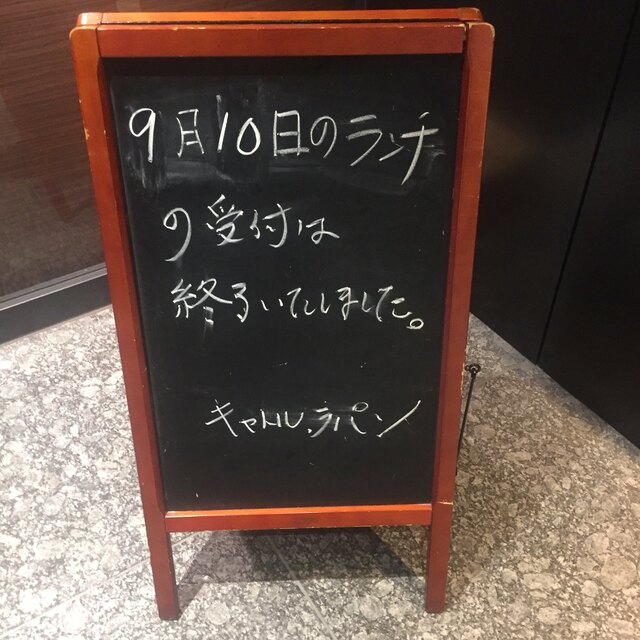 9月10日のランチ
の受付は
終るいたしました。
キャトル.ラパン